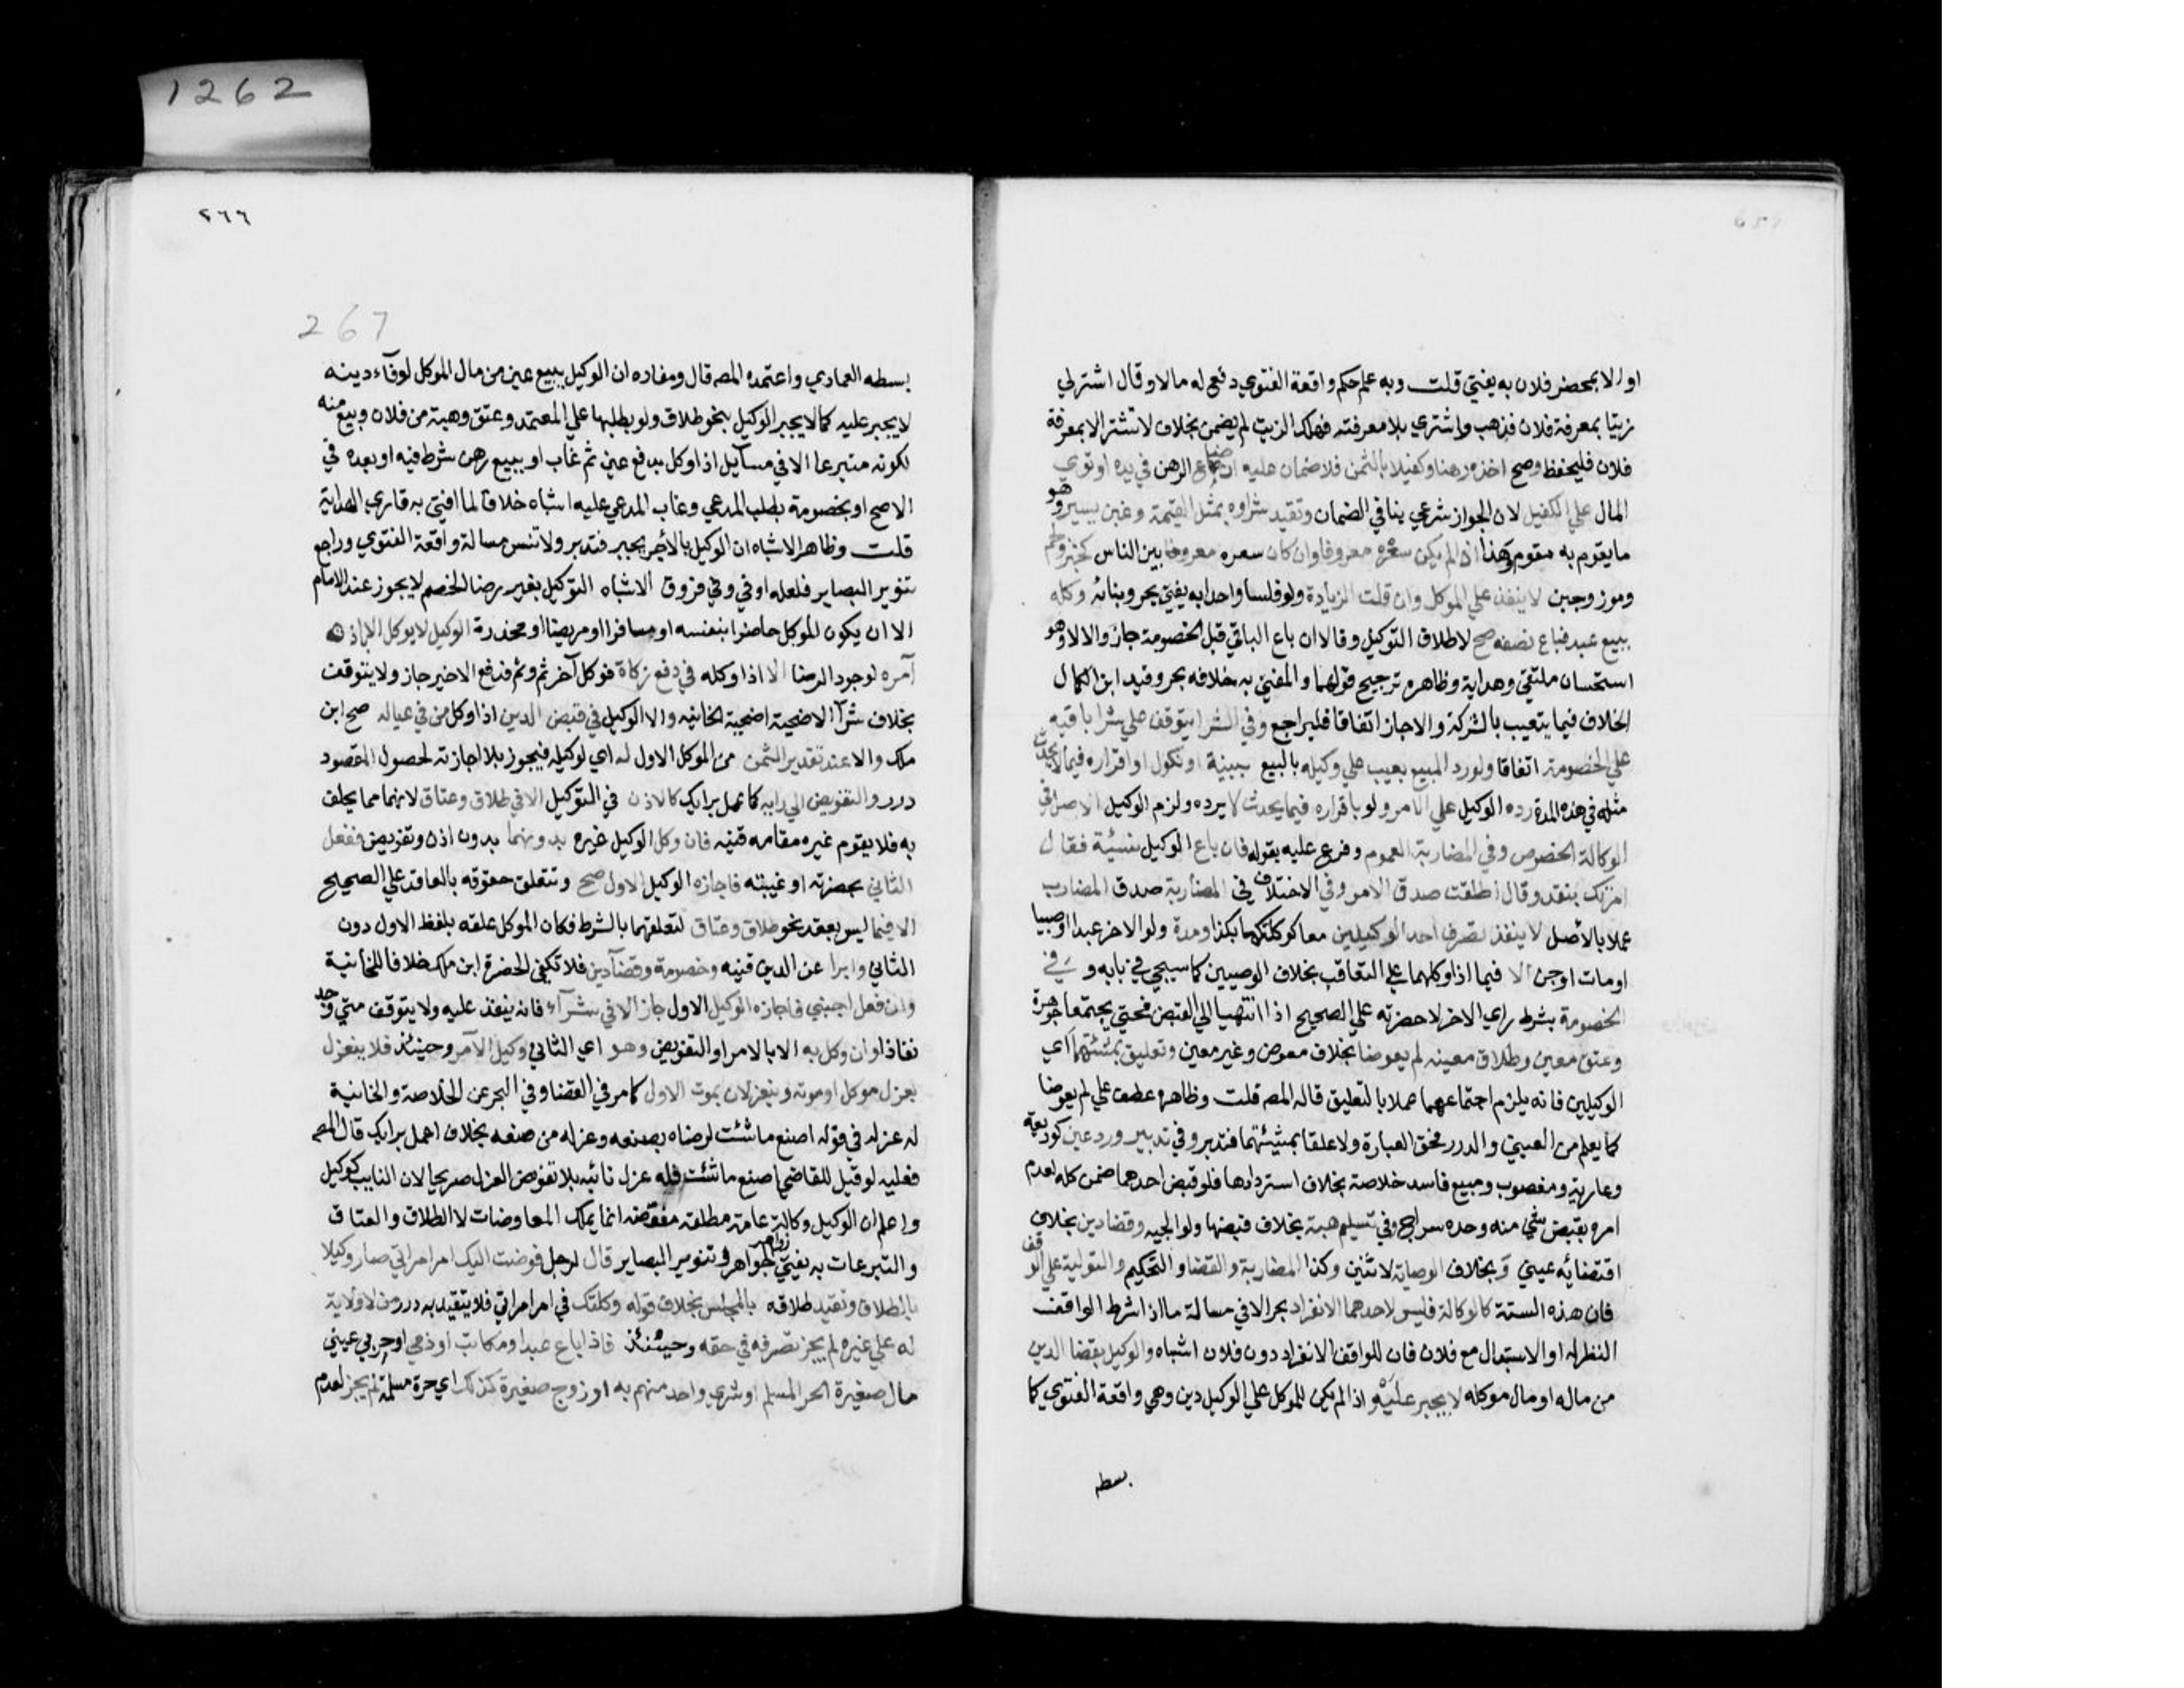 1262
او لا بمحضر فلان به يفتي قلت وبه علم حكم واقعة الفتوي دفع له مالا وقال اشتر لي
زيتا بمعرفة فلان فذهب واشتري بلا معرفته فهلك الزيت لم يضمن بخلاف لا تشتر الا بمعرفة
فلان فليحفظ وصح اخذه رهنا وكفيلا بالثمن فلا ضمان عليه ان ضاع الرهن في يده او توي
المال علي الكفيل لان الجواز شرعي ينافي الضمان وتقيد شراوه بمثل القيمة وغبن يسير وهو
ما يقوم به مقوم وهذا اذا لم يكن سعره معروفا وان كان سعره معروفا بين الناس كخبز ولحم
وموز وجبن لا ينفذ علي الموكل وان قلت الزيادة ولو فلسا واحدا به يفتي بحر وبنايه وكله
ببيع عبد فباع نصفه صح لاطلاق التوكيل وقالا ان باع الباقي قبل الخصومة جاز والا لا وهو
استحسان ملتقي وهداية وظاهره ترجيح قولهما والمفتي به خلافه بحر وقيد ابن الكمال
الخلاف فيما يتعيب بالشركة والا جاز اتفاقا فليراجع وفي الشرا يتوقف علي شرا باقيه
علي الخصومة اتفاقا ولو رد المبيع بعيب علي وكيله بالبيع ببينة او نكول او اقراره فيما لا يحدث
مثله في هذه المدة رده الوكيل علي الامر ولو باقراره فيما يحدث لا يرده ولزم الوكيل الاصل في
الوكالة الخصوص وفي المضاربة العموم وفرع عليه بقوله فان باع الوكيل نسئية فقال
امرتك بنقد وقال اطلقت صدق الامر وفي الاختلاف في المضاربة صدق المضارب
عملا بالاصل لا ينفذ تصرف احد الوكيلين معا كوكلتكما بكذا ومدة ولو الاخر عبدا او صبيا
او مات او جن الا فيما اذا وكلهما علي التعاقب بخلاف الوصيين كما سيجي في بابه و في
الخصومة بشرط راي الاخر لا حضرته علي الصحيح اذا انتهيا الي القبض فحتي يجتمعا جوهرة
وعتق معين وطلاق معينه لم يعوضا بخلاف معوض وغير معين وتعليق بمشئتهما اي
الوكيلين فانه يلزم اجتماعهما عملا بالتعليق قاله المصـ قلت وظاهره عطف علي لم يعوضا
كما يعلم من العيني والدرر فحق العبارة ولا علقا بمشيئتهما فتدبر وفي تدبير ورد عين كوديعة
وعارية ومغصوب ومبيع فاسد خلاصة بخلاف استردادها فلو قبض احدهما ضمن كله لعدم
امره بقبض شي منه وحده سراج وفي تسليم هبة بخلاف قبضها ولوالجيه وقضا دين بخلاف
اقتضائه عيني وبخلاف الوصاية لاثنين وكذا المضاربة والقضا والتحكيم والتولية علي الوقف
فان هذه الستة كالوكالة فليس لاحدهما الانفراد بحر الا في مسالة ما اذا اشرط الواقف
النظر له او الاستبدال مع فلان فان للواقف الانفراد دون فلان اشباه والوكيل بقضا الدين
من ماله او مال موكله لا يجبر عليه اذا لم يكن للموكل علي الوكيل دين وهي واقعة الفتوي كما
بسطه
٢٦٦
267
بسطه العمادي واعتمده المصـ قال ومفاده ان الوكيل ببيع عين من مال الموكل لوفآء دينه
لا يجبر عليه كما لا يجبر الوكيل بنحو طلاق ولو بطلبها علي المعتمد وعتق وهبة من فلان وبيع منه
لكونه متبرعا الا في مسآيل اذا وكل بدفع عين ثم غاب او ببيع رهن شرط فيه او بعده في
الاصح او بخصومة بطلب المدعي وغاب المدعي عليه اشباه خلافا لما افتي به قاري الهداية
قلت وظاهر الاشباه ان الوكيل بالأجر يجبر فتدبر ولا تنس مسالة واقعة الفتوي وراجع
تنوير البصاير فلعله اوفي وفي فروق الاشباه التوكيل بغير رضا الخصم لا يجوز عند الامام
الا ان يكون الموكل حاضرا بنفسه او مسافرا او مريضا او مخدرة الوكيل لا يوكل الا باذن
آمره لوجود الرضا الا اذا وكله في دفع زكاة فوكل آخر ثم وثم فدفع الاخير جاز ولا يتوقف
بخلاف شرآ الاضحية اضحية الخانيه والا الوكيل في قبض الدين اذا وكل من في عياله صح ابن
ملك والا عند تقدير الثمن من الموكل الاول له اي لوكيله فيجوز بلا اجازته لحصول المقصود
درر والتفويض الي رايه كاعمل برايك كالاذن في التوكيل الا في طلاق وعتاق لانهما مما يحلف
به فلا يقوم غيره مقامه قنيه فان وكل الوكيل غيره بدونهما بدون اذن وتفويض ففعل
الثاني بحضرته او غيبته فاجازه الوكيل الاول صح وتتعلق حقوقه بالعاقد علي الصحيح
الا فيما ليس بعقد نحو طلاق وعتاق لتعلقهما بالشرط فكان الموكل علقه بلفظ الاول دون
الثاني وابرا عن الدين قنيه وخصومة وقضآ دين فلا تكفي الحضرة ابن ملك خلافا للخانية
وان فعل اجنبي فاجازه الوكيل الاول جاز الا في شرآء فانه ينفذ عليه ولا يتوقف متي وجد
نفاذا وان وكل به الا بالامر او التفويض وهو اي الثاني وكيل الآمر وحينئذ فلا ينعزل
بعزل موكله او موته وينعزلان بموت الاول كما مر في القضا وفي البحر عن الخلاصة والخانية
له عزله في قوله اصنع ما شئت لرضاه بصنعه وعزله من صنعه بخلاف اعمل برايك قال المصـ
فعليه لو قيل للقاضي اصنع ما شئت فله عزل نائبه بلا تفويض العزل صريحا لان النايب كوكيل
واعلم ان الوكيل وكالة عامة مطلقة مفوضة انما يملك المعاوضات لا الطلاق والعتاق
والتبرعات به يفتي زواهر الجواهر وتنوير البصاير قال لرجل فوضت اليك امر امراتي صار وكيلا
بالطلاق وتقيد طلاقه بالمجلس بخلاف قوله وكلتك في امر امراتي فلا يتقيد به درر من لا ولاية
له علي غيره لم يجز تصرفه في حقه وحينئذ فاذا باع عبد او مكاتب او ذمي او حربي عيني
مال صغيرة الحر المسلم او شري واحد منهم به او زوج صغيرة كذلك اي حرة مسلمة لم يجز لعدم